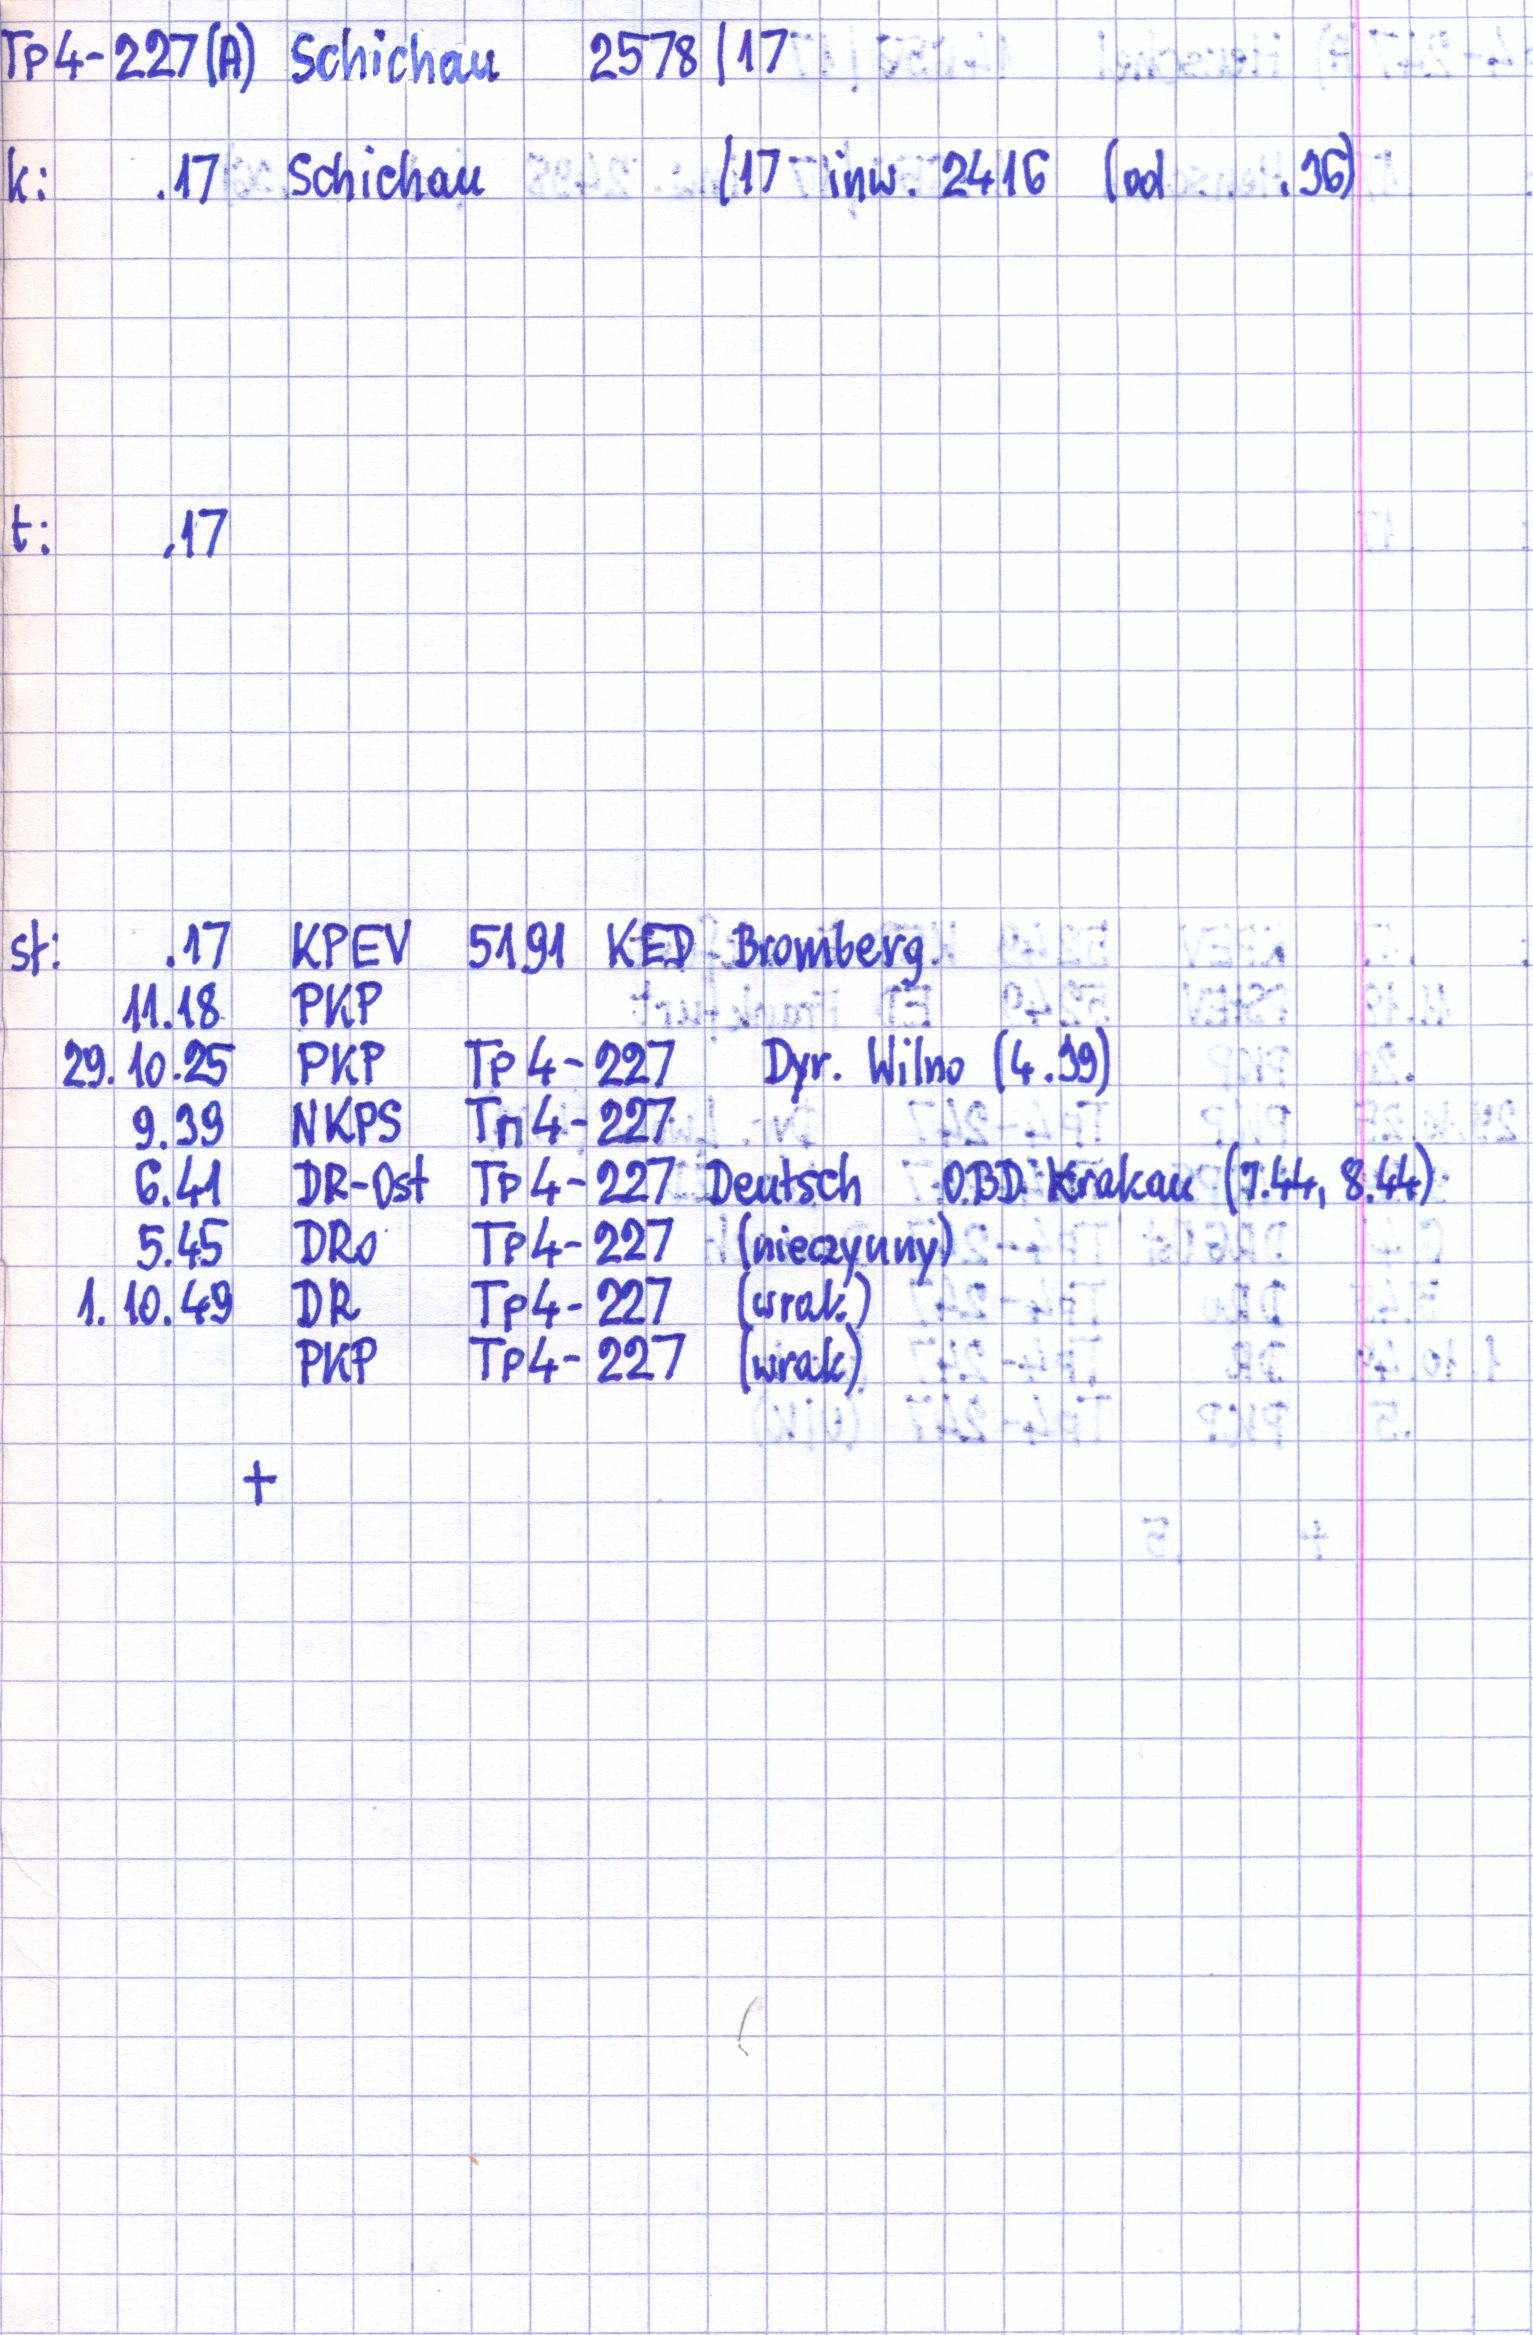 Tp4-227(A) Schichau 2578/17
k: .17 Schichau /17 inw. 2416 (od .36)
t: .17
st: .17 KPEV 5191 KED Bromberg
11.18 PKP
29.10.25 PKP Tp4-227 Dyr. Wilno (4.39)
9.39 NKPS Тп4-227
6.41 DR-Ost Tp4-227 Deutsch OBD Krakau (7.44, 8.44)
5.45 DRo Tp4-227 (nieczynny)
1.10.49 DR Tp4-227 (wrak)
PKP Tp4-227 (wrak)
+